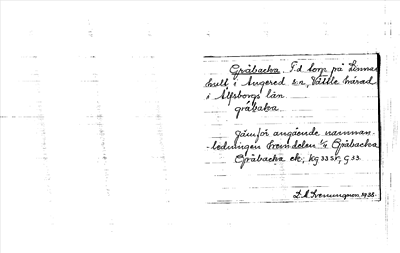 Gråbacka. F.d torp på Linnar-
hult i Angered sn, Vättle härad
i Älfsborgs län.
gråbaka.
Jämför angående namnan-
ledningen fremdelen Gråbacka
Gråbacka ek, kg 33 Sr, G 33.
D.A Svenungsson 1938.